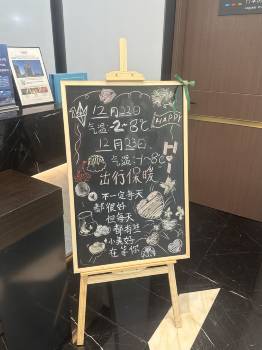 12月22日
HAPPY
气温-2~8℃
12月23日
Hi
气温-1~8℃
出行保暖
不一定每天
都很好
但每天
都有些
小美好
在等你